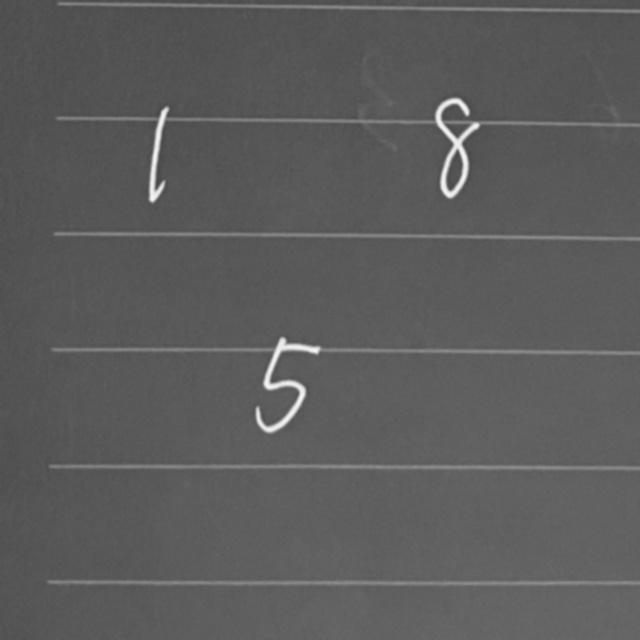 1 8
5